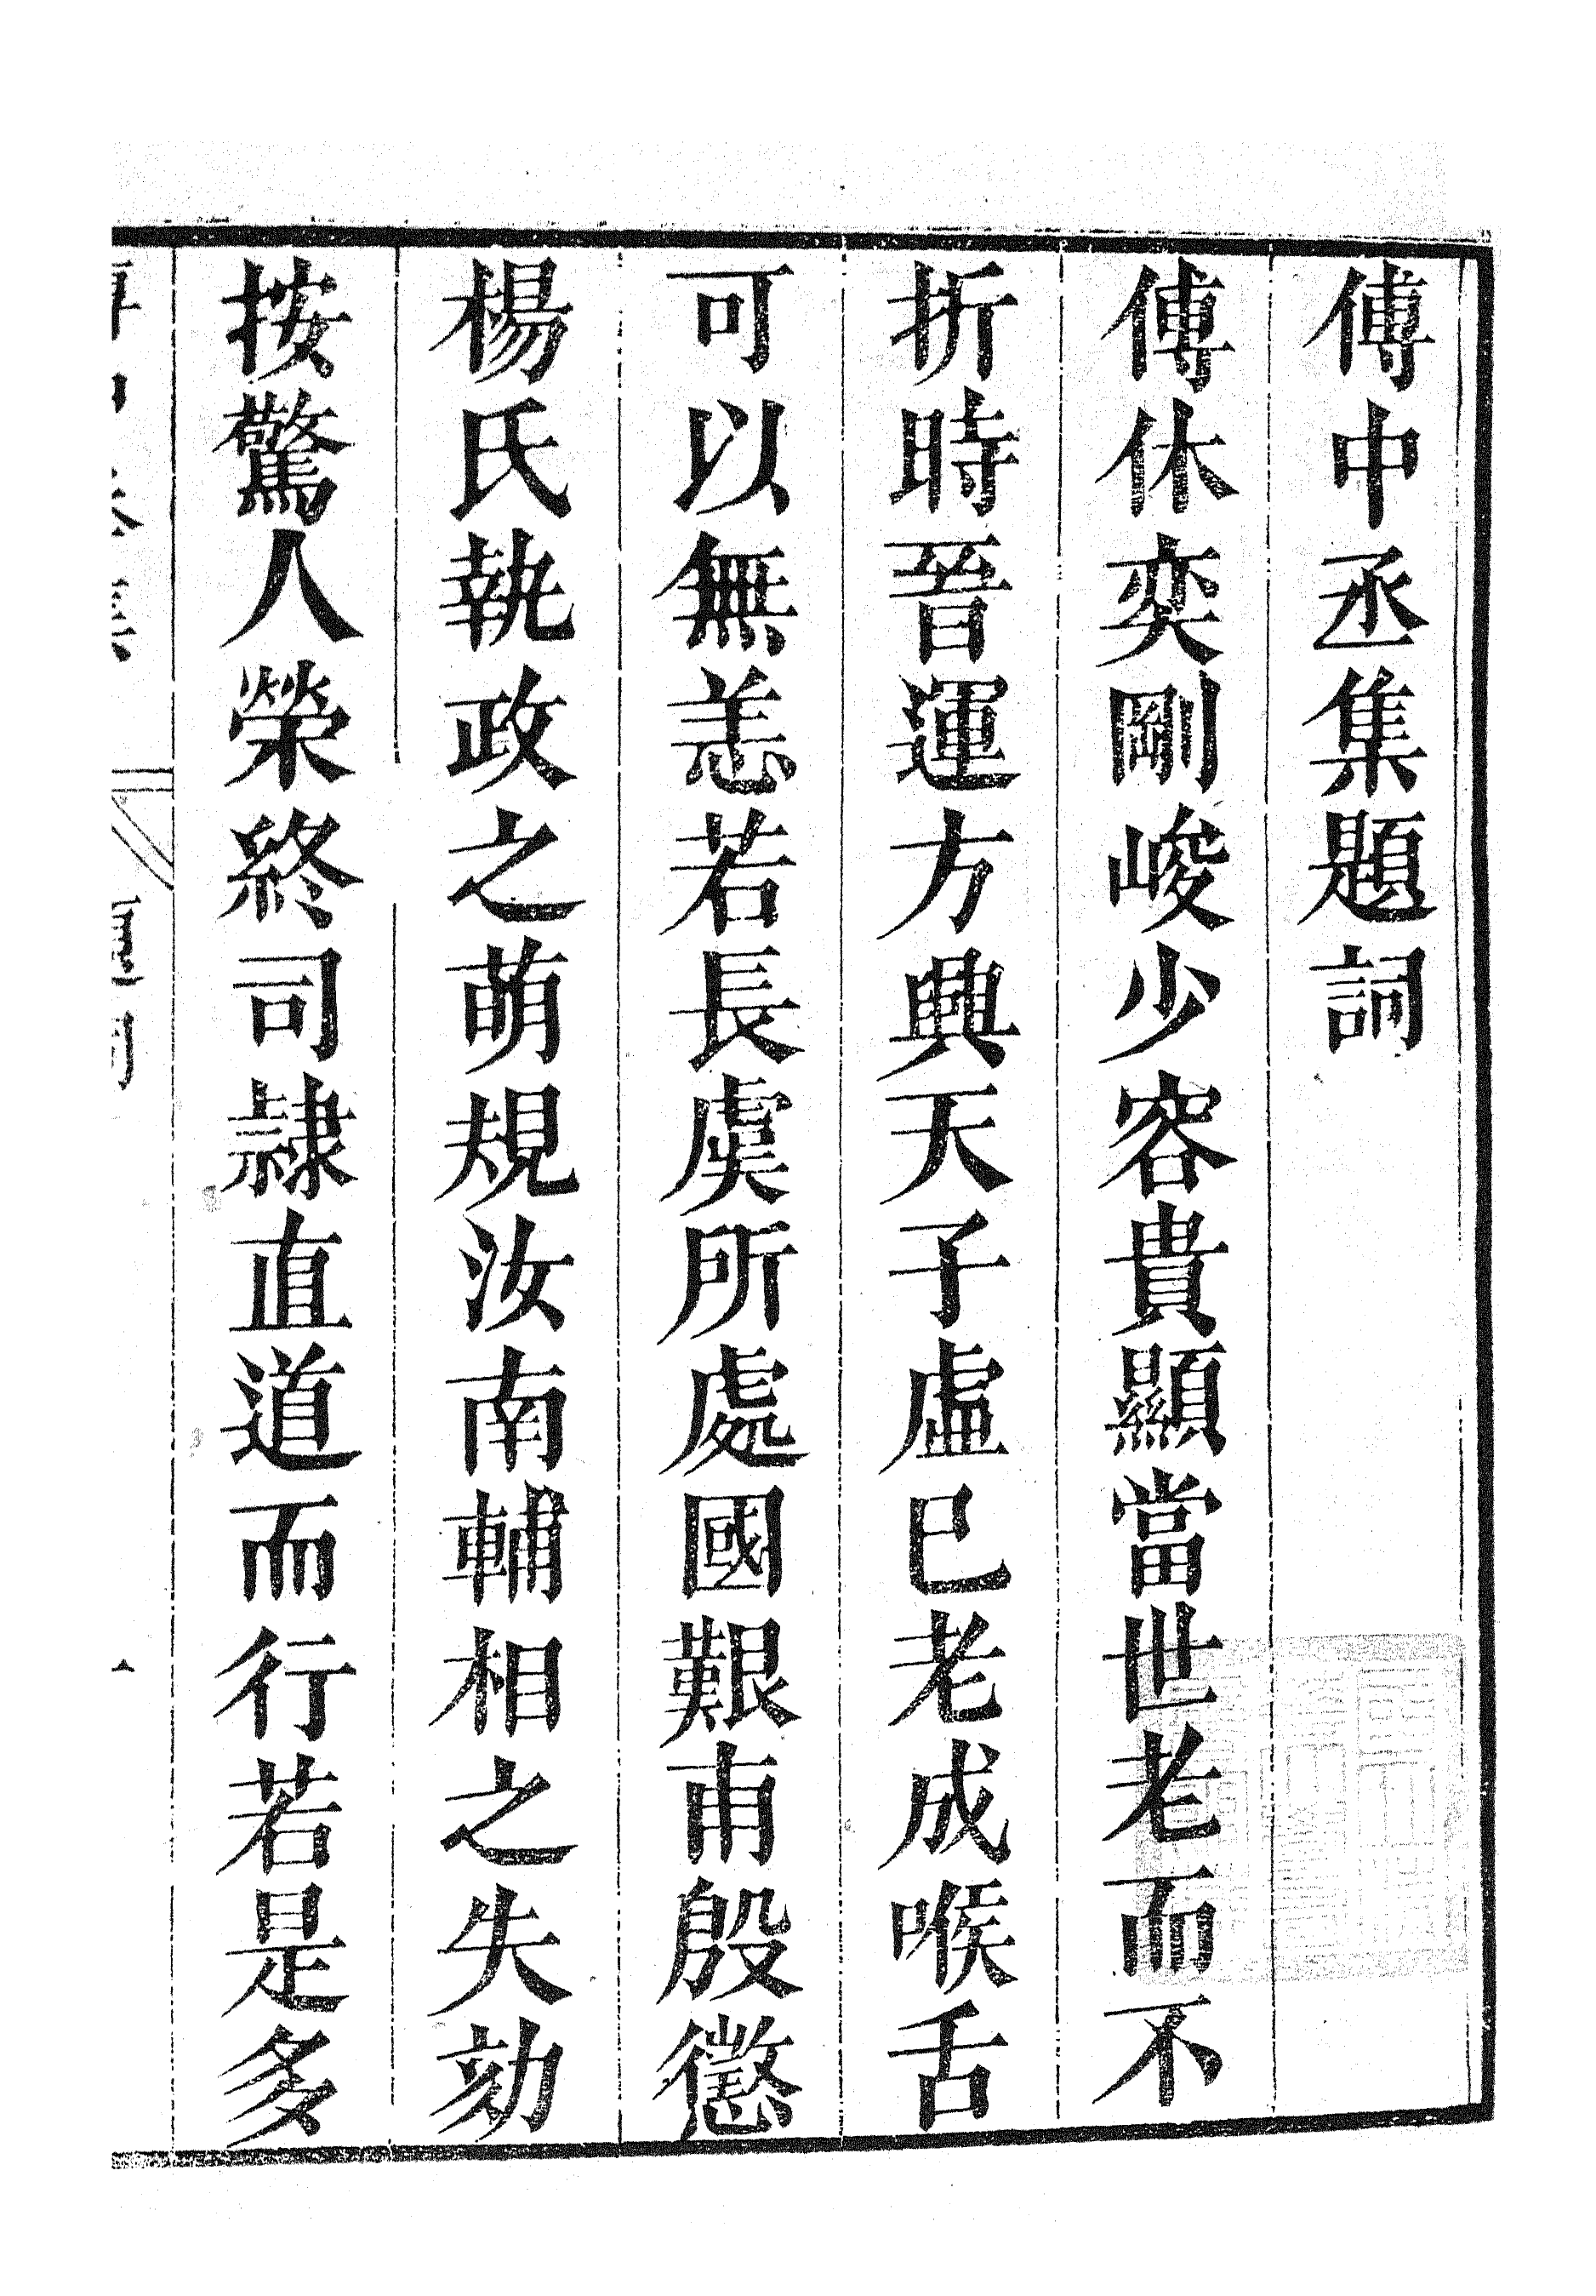 傅中丞集題詞
傅休奕剛峻少容貴顯當世老而不
折時晉運方興天子虛已老成喉舌
可以無恙若長虞所處國艱甫殷懲
楊氏執政之萌規汝南輔相之失劾
按驚人榮終司隷直道而行若是多